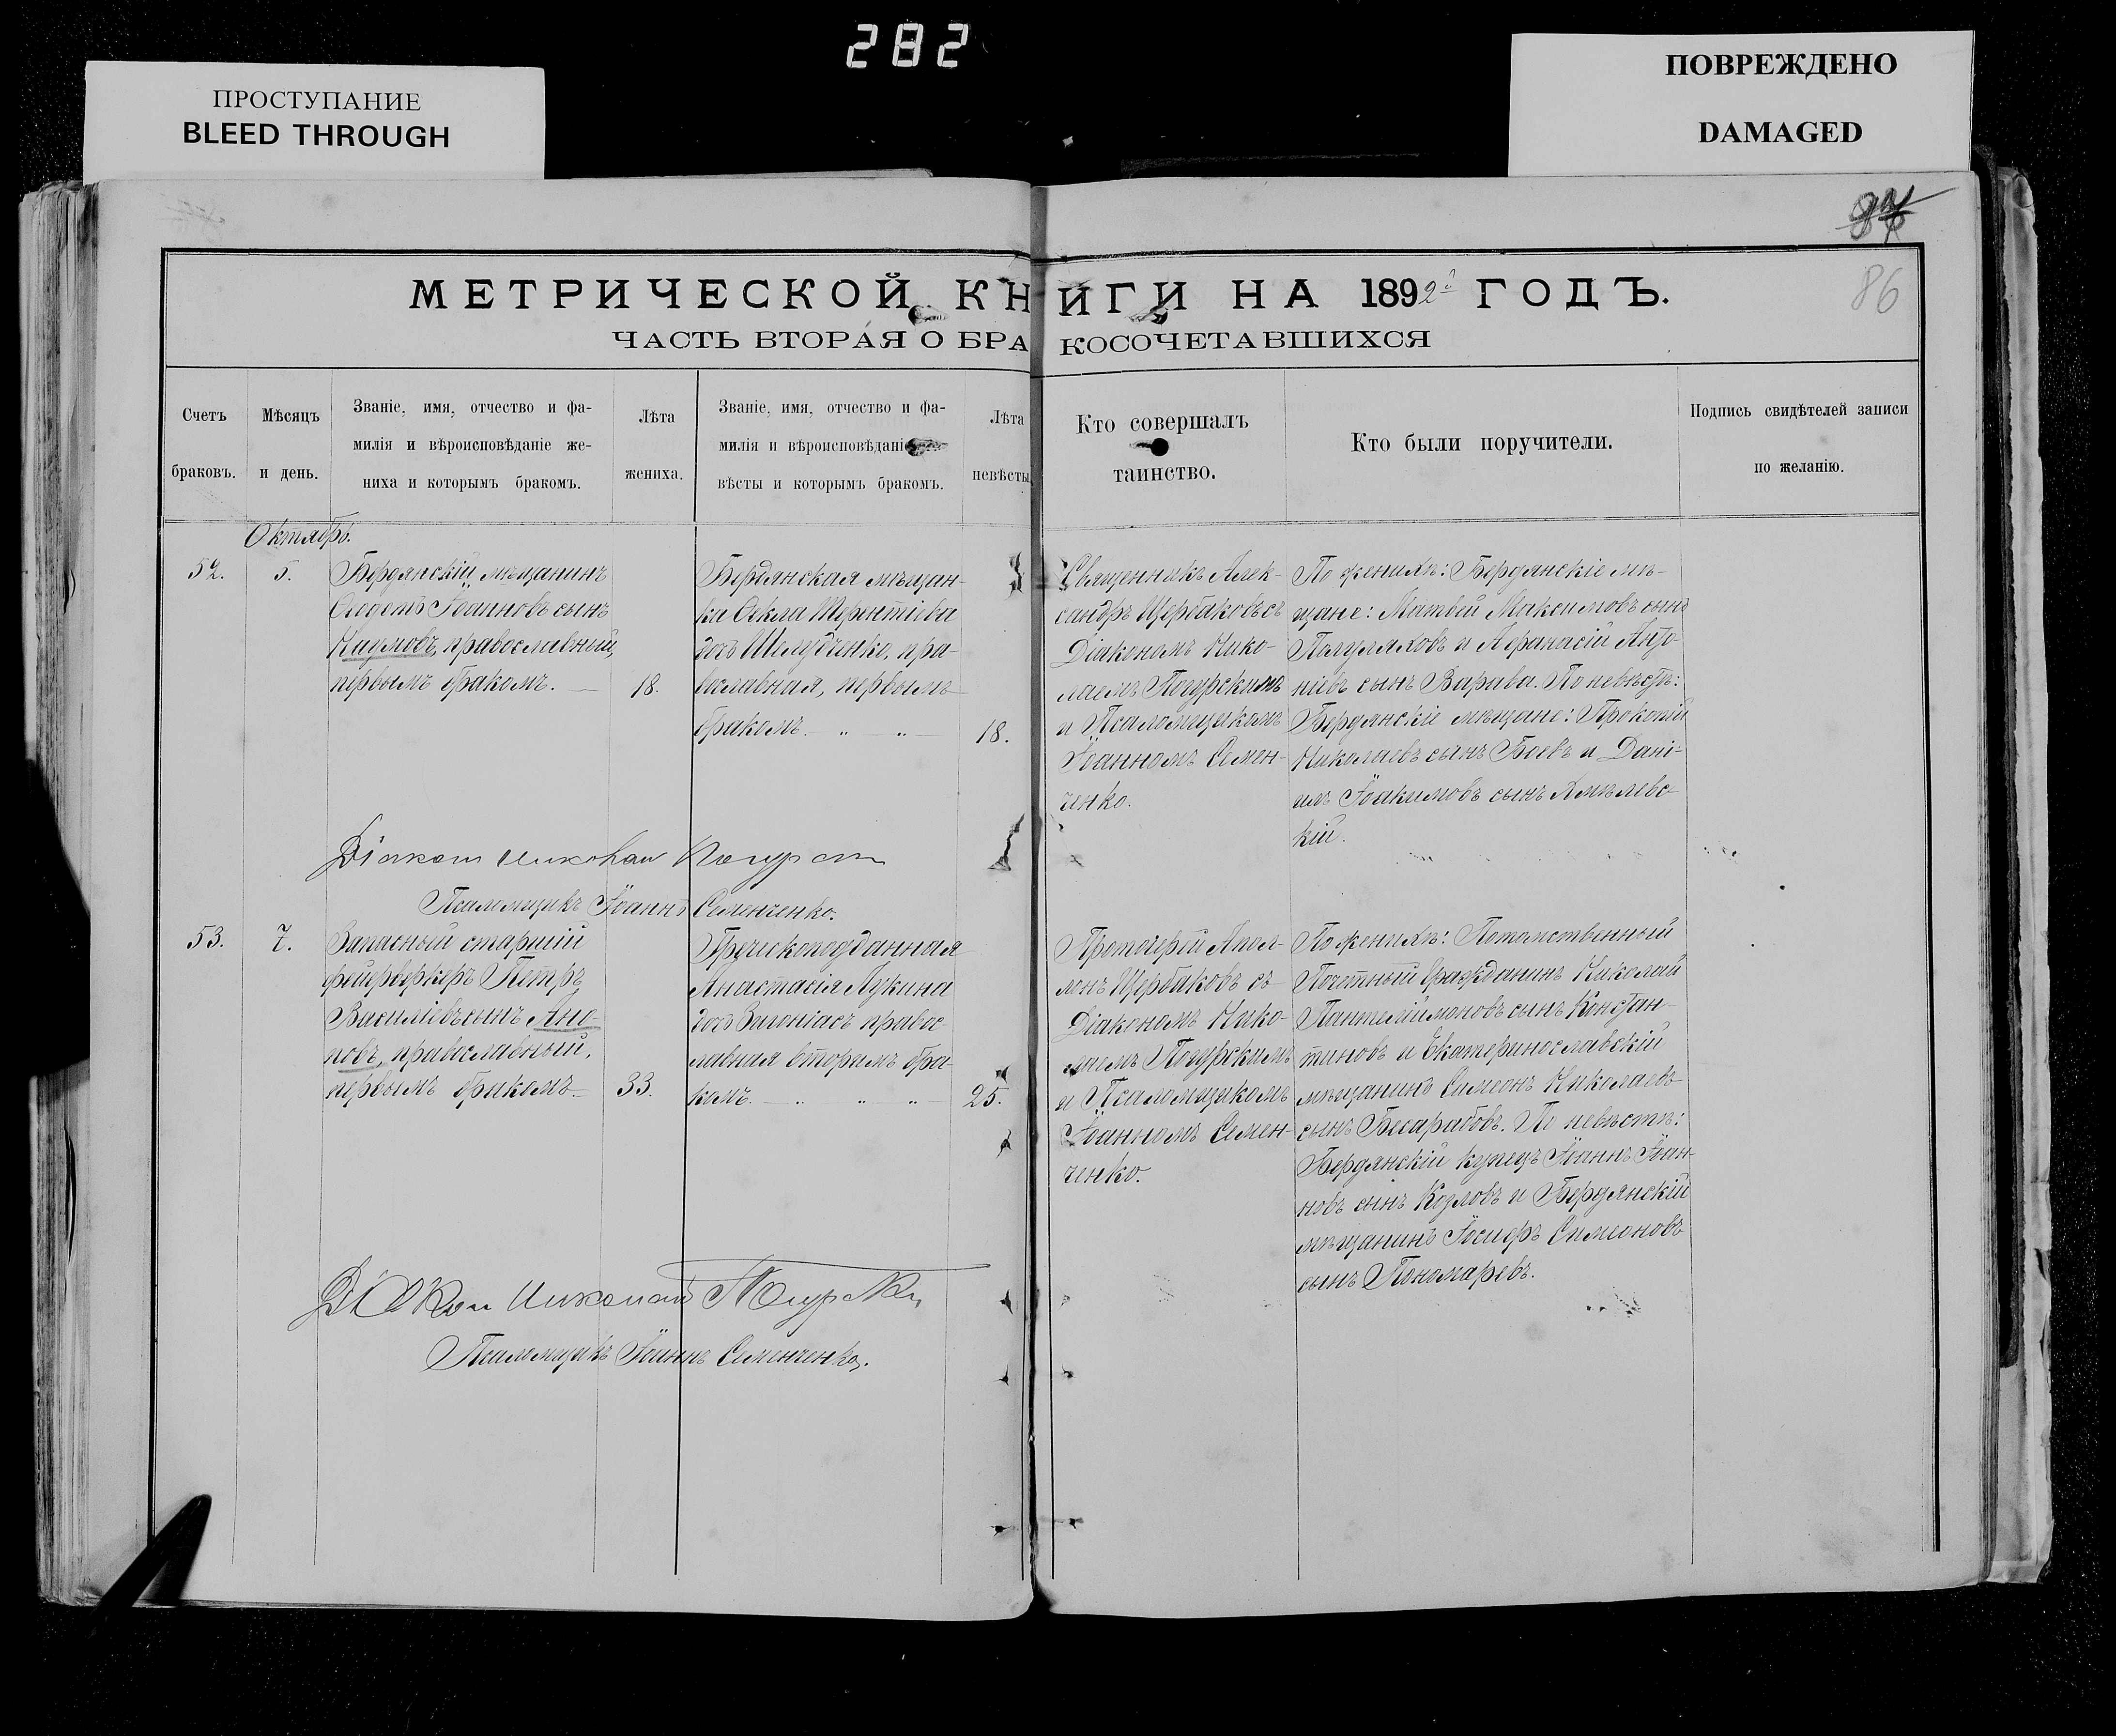 282
ПРОСТУПАНИЕ
BLEED THROUGH
ПОВРЕЖДЕНО
DAMAGED
86
МЕТРИЧЕСКОЙ КНИГИ НА 1892й ГОДЪ.
ЧАСТЬ ВТОРАЯ О БРАКОСОЧЕТАВШИХСЯ
Счетъ
браковъ.
Мѣсяцъ
и день.
Званіе, имя, отчество и фа-
милія и вѣроисповѣданіе же-
ниха и которымъ бракомъ.
Лѣта
жениха.
Званіе, имя, отчество и фа-
милія и вѣроисповѣданіе
вѣсты и которымъ бракомъ.
Лѣта
невѣсты
Кто совершалъ
таинство.
Кто были поручители.
Подпись свидѣтелей записи
по желанію.
Октябрь.
52.
5.
Бердянскій мѣщанинъ
Ѳедотъ Іоанновъ сынъ
Наумовъ, православный,
первымъ бракомъ.
18.
Бердянская мѣщан-
ка Ѳекла Терентіева
дочь Шелудченко, пра-
вославная, первымъ
бракомъ. " "
18.
Священникъ Алек-
сандръ Щербаковъ съ
Діакономъ Нико-
лаемъ Погурскимъ
и Псаломщикомъ
Іоанномъ Семен-
ченко.
По женихѣ: Бердянскіе мѣ-
щане: Матвей Максимовъ сынъ
Полуляховъ и Аѳанасій Анто-
ніевъ сынъ Варава. По невѣстѣ:
Бердянскіе мѣщане: Прокопій
Николаевъ сынъ Боевъ и Дані-
илъ Іоакимовъ сынъ Хмѣлевс-
кій.
Діаконъ Николай Погурскій
Псаломщикъ Іоаннъ Семенченко.
53.
7.
Запасный старшій
фейерверкеръ Петръ
Василіевъ сынъ Ано-
повъ, православный,
первымъ бракомъ
33.
Греческоподданная
Анастасія Лукина
дочь Загоніасъ правос-
лавная вторымъ бра-
комъ. " " "
25.
Протоіерей Апол-
лонъ Щербаковъ съ
Діакономъ Нико-
лаемъ Погурскимъ
и Псаломщикомъ
Іоанномъ Семен-
ченко.
По женихѣ: Потомственный
Почетный Гражданинъ Николай
Пантелеймоновъ сынъ Констан-
тиновъ и Екатеринославскій
мѣщанинъ Симеонъ Николаевъ
сынъ Бесарабовъ. По невѣстѣ:
Бердянскій купецъ Іоаннъ Іоан-
новъ сынъ Козловъ и Бердянскій
мѣщанинъ Іосифъ Симеоновъ
сынъ Пономаревъ.
Діаконъ Николай Погурскій
Псаломщикъ Іоаннъ Семенченко.